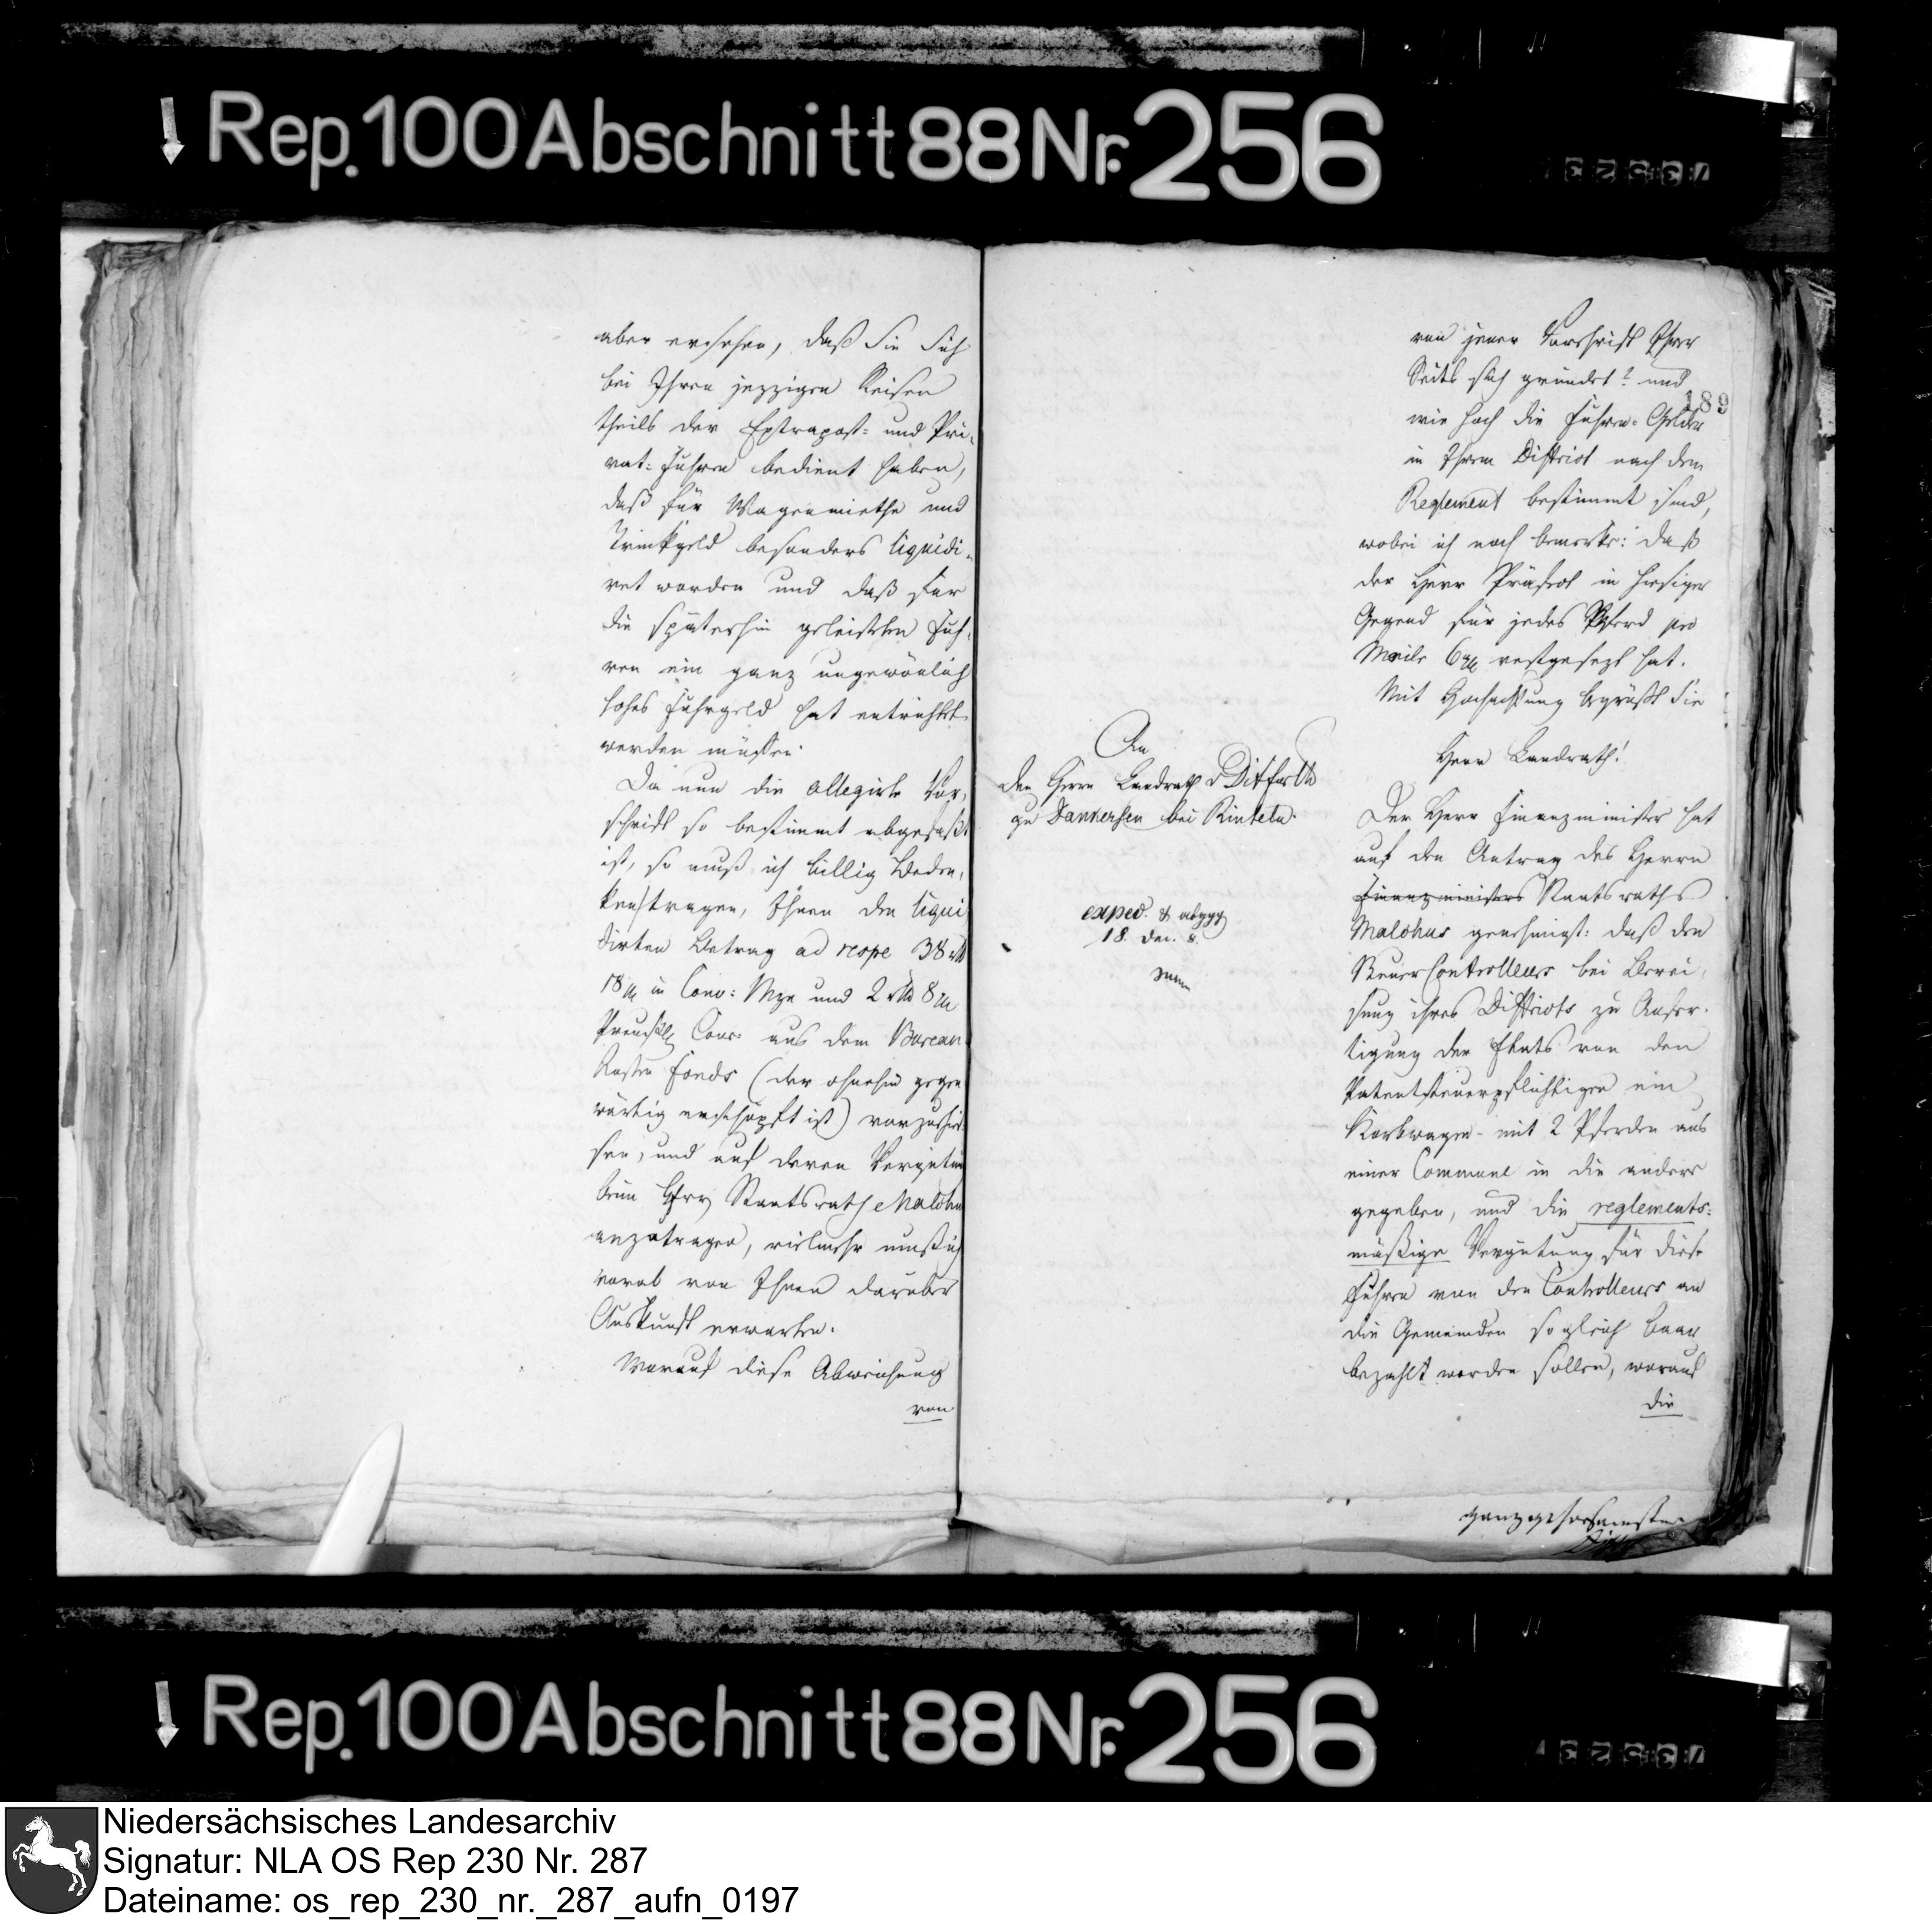 Rep. 100 Abschnitt 88 Nr. 256
aber ersehen, daß Sie sich
bei Ihren jezzigen Reisen
theils der Extrapost- und Pri-
vat-Fuhren bedient haben,
daß für Wagenmiethe und
Trinkgeld besonders liquidi-
ret worden und daß für
die späterhin geleisteten Fuh-
ren ein ganz ungewönlich
hohes Fuhrgeld hat entrichtet
werden müssen.
Da nun die allegirte Vor-
schrift so bestimmt abgefaßt
ist, so muß ich billig Beden-
ken tragen, Ihnen den liqui
dirten Betrag ad resp 38
18 in Conv: Mze und 2 8
Preuss Cour: aus dem Bureau
Kosten Fonds (der ohnehin gegen
wärtig erschöpft ist) vorzuschies-
sen, und auf deren Vergütung
beim Herrn Staatsrath Malchus
anzutragen, vielmehr muß ich
vorab von Ihnen darüber
Auskunft erwarten.
Worauf diese Abweichung
von
189
von jener Vorschrift Ihrer
Seits sich gründet? und
wie hoch die Fuhren-Gelder
in Ihrem District nach dem
Reglement bestimmt sind,
wobei ich noch bemerke: daß
der Herr Präfect in hiesiger
Gegend für jedes Pferd pro
Meile 6 vestgesezt hat.
Mit Hochachtung begrüßt Sie
An
den Herrn Landrath v Ditfurth
zu Dankersen bei Rinteln.
exped. & abgeg
18. Dec. 8.
Herr Landrath!
Der Herr Finanzminister hat
auf den Antrag des Herrn
Finanzministers Staatsraths
Malchus genehmigt: daß den
Steuer Controlleurs bei Berei-
sung ihres Districts zu Anfer-
tigung der Etats von den
Patentsteuerpflichtigen ein
Korbwagen mit 2 Pferden aus
einer Commune in die andere
gegeben, und die reglements-
mäßige Vergütung für diese
Fuhren von den Controlleurs an
die Gemeinden sogleich baar
bezahlt werden sollen, worauf
die
ganz gehorsamster
Rep. 100 Abschnitt 88 Nr. 256
Niedersächsisches Landesarchiv
Signatur: NLA OS Rep 230 Nr. 287
Dateiname: os_rep_230_nr._287_aufn_0197